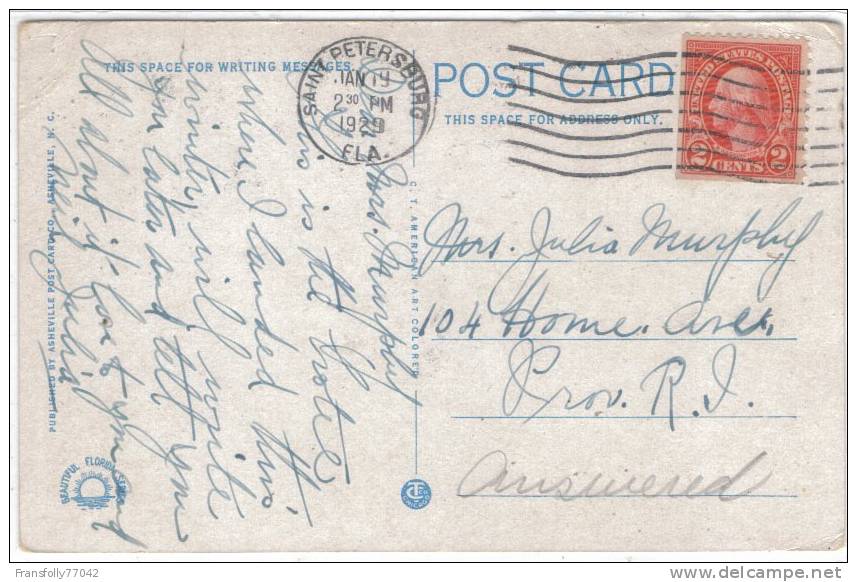 THIS SPACE FOR WRITING MESSAGES.
POST CARD
THIS SPACE FOR ADDRESS ONLY.
SAINT PETERSBURG
JAN 19
2 30 PM
1929
FLA.
UNITED STATES POSTAGE
2 CENTS 2
Mrs. Murphy
This is the hotel
where I landed this
winter, will write
you later and tell you
all about it love to you and
Julia
Mrs. Julia Murphy
104 Home. Ave.,
Prov. R. I.
answered
PUBLISHED BY ASHEVILLE POST CARD CO., ASHEVILLE, N. C.
C. T. AMERICAN ART COLORED
BEAUTIFUL FLORIDA SERIES
Fransfolly77042
www.delcampe.net